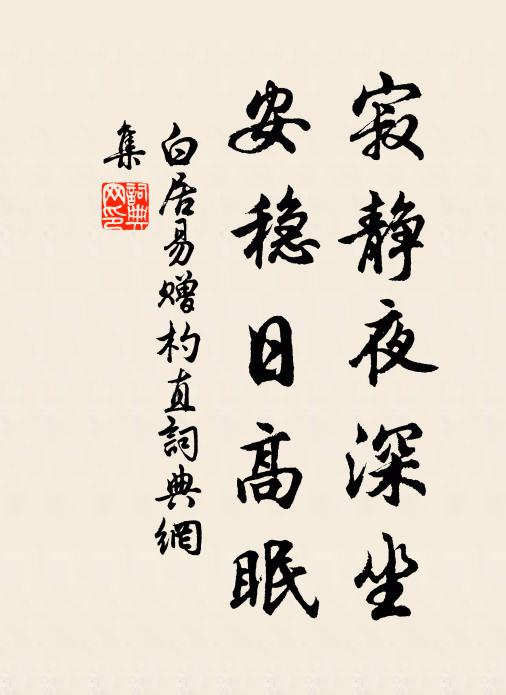 寂静夜深坐
安穏日高眠
白居易赠杓直詞典網
集
詞典网印